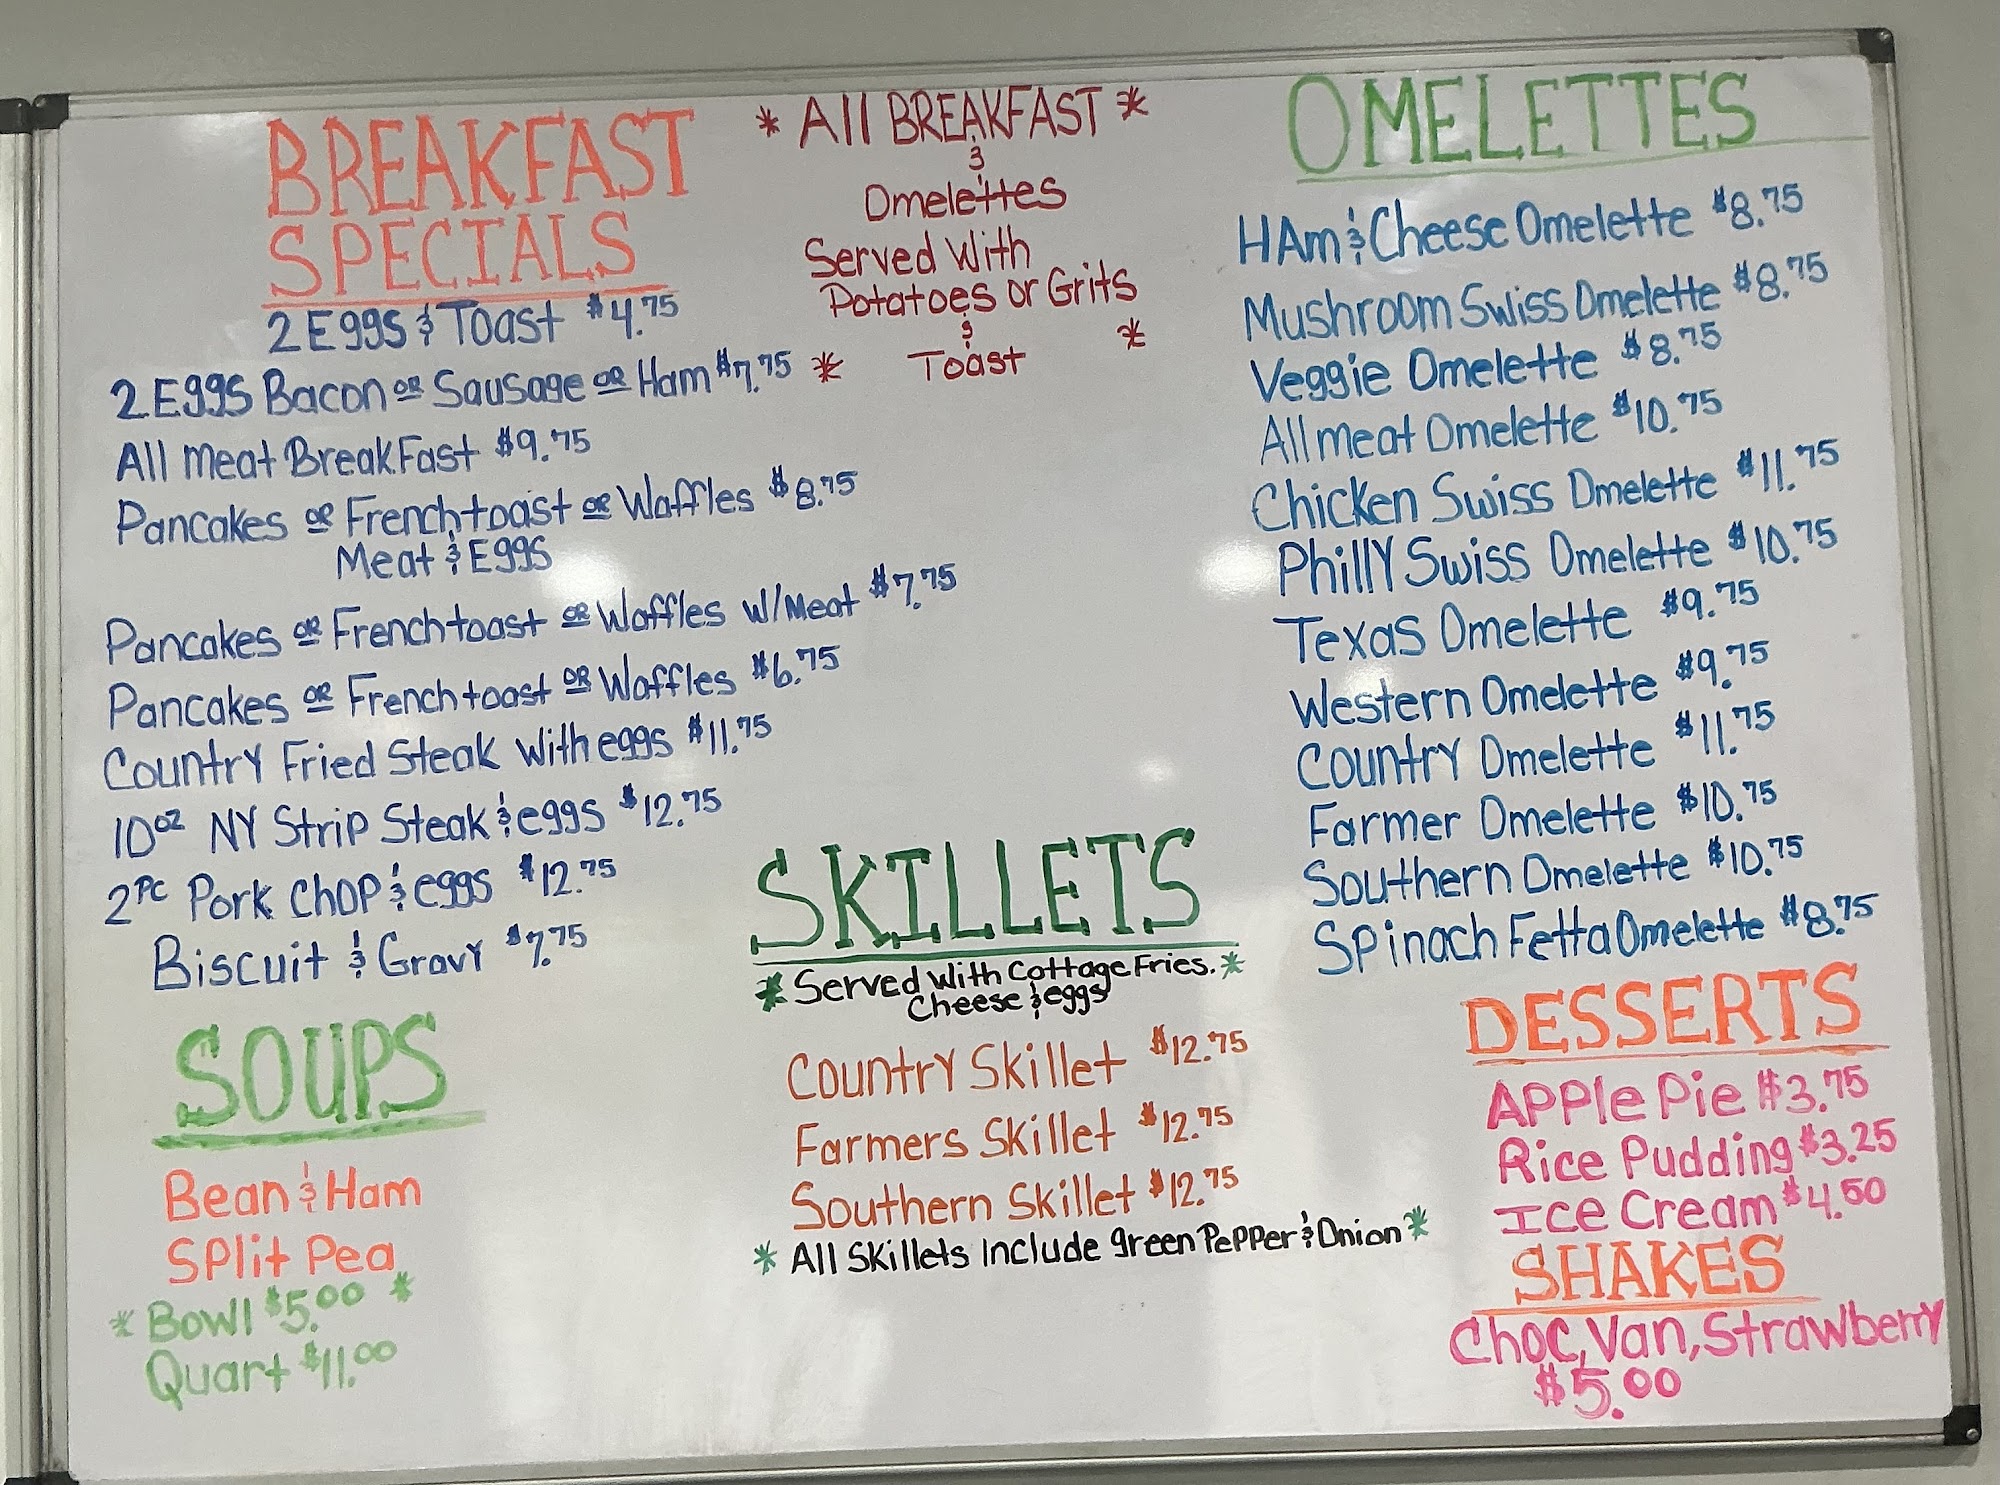 BREAKFAST
SPECIALS
2 Eggs & Toast $4.75
2 Eggs Bacon or Sausage or Ham $7.75
All Meat BreakFast $9.75
Pancakes or Frenchtoast or Waffles $8.75
Meat & Eggs
Pancakes or Frenchtoast or Waffles w/Meat $7.75
Pancakes or Frenchtoast or Waffles $6.75
Country Fried Steak with eggs $11.75
10oz NY Strip Steak & eggs $12.75
2pc Pork Chop & eggs $12.75
Biscuit & Gravy $7.75
SOUPS
Bean & Ham
Split Pea
* Bowl $5.00 *
Quart $11.00
* All BREAKFAST *
&
Omelettes
Served With
Potatoes or Grits
&
* Toast *
SKILLETS
* Served With Cottage Fries. *
Cheese & eggs
Country Skillet $12.75
Farmers Skillet $12.75
Southern Skillet $12.75
* All Skillets Include green Pepper & Onion *
OMELETTES
HAm & Cheese Omelette $8.75
Mushroom Swiss Omelette $8.75
Veggie Omelette $8.75
All meat Omelette $10.75
Chicken Swiss Omelette $11.75
Philly Swiss Omelette $10.75
Texas Omelette $9.75
Western Omelette $9.75
Country Omelette $11.75
Farmer Omelette $10.75
Southern Omelette $10.75
Spinach Fetta Omelette $8.75
DESSERTS
Apple Pie $3.75
Rice Pudding $3.25
Ice Cream $4.50
SHAKES
Choc, Van, Strawberry
$5.00